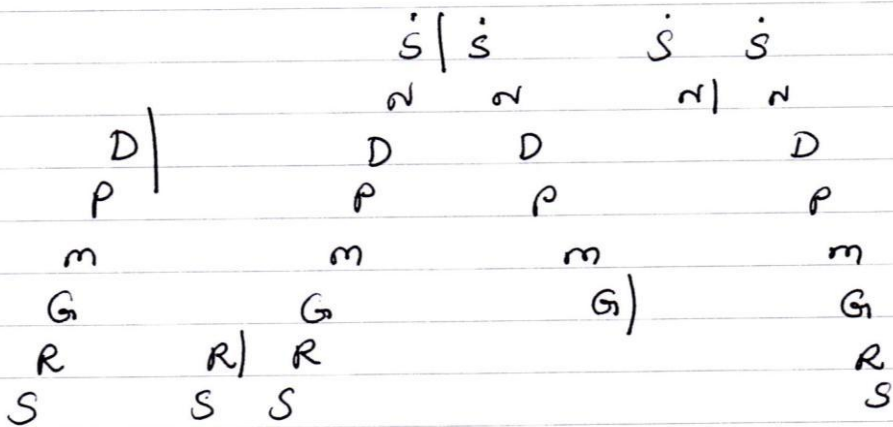 Ṡ | Ṡ Ṡ Ṡ
N N N | N
D | D D D
P P P P
m m m m
G G G | G
R R | R R
S S S S